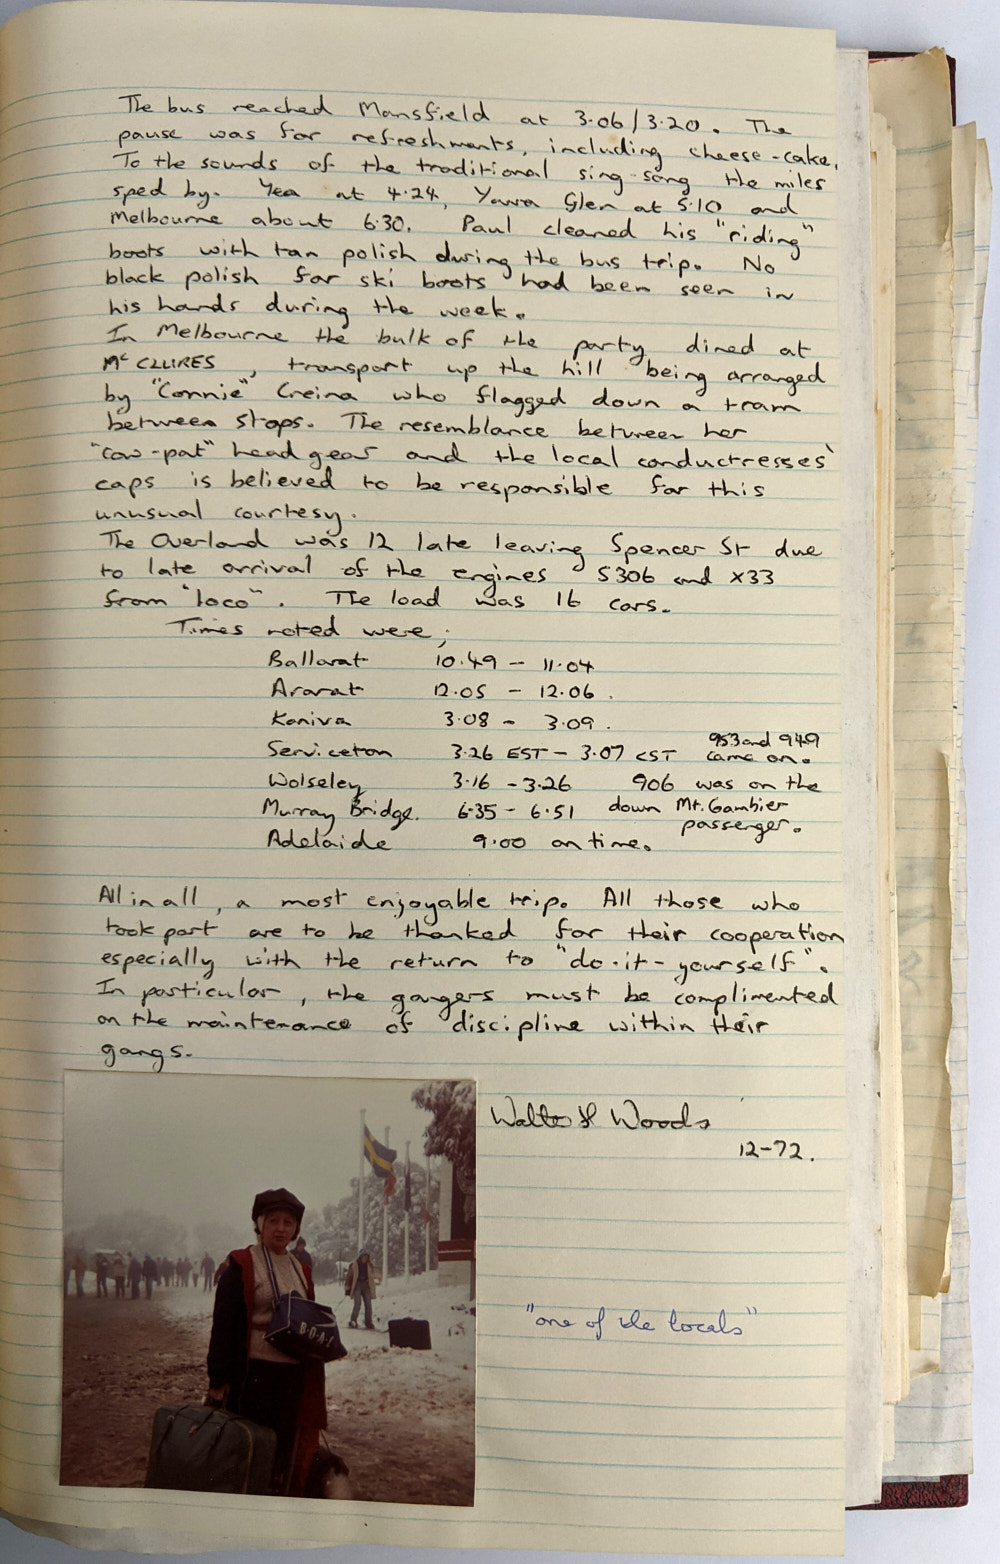 The bus reached Mansfield at 3.06/3.20. The
pause was for refreshments, including cheese-cake.
To the sounds of the traditional sing-song the miles
sped by. Yea at 4.24, Yarra Glen at 5.10 and
Melbourne about 6.30. Paul cleaned his "riding"
boots with tan polish during the bus trip. No
black polish for ski boots had been seen in
his hands during the week.
In Melbourne the bulk of the party dined at
McCLURES, transport up the hill being arranged
by "Connie" Creina who flagged down a tram
between stops. The resemblance between her
"cow-pat" head gear and the local conductresses'
caps is believed to be responsible for this
unusual courtesy.
The Overland was 12 late leaving Spencer St due
to late arrival of the engines S306 and X33
from "loco". The load was 16 cars.
Times noted were;
Ballarat 10.49 - 11.04
Ararat 12.05 - 12.06.
Kaniva 3.08 - 3.09.
Serviceton 3.26 EST - 3.07 CST 953 and 949 came on.
Wolseley 3.16 - 3.26 906 was on the
Murray Bridge. 6.35 - 6.51 down Mt. Gambier passenger.
Adelaide 9.00 on time.
All in all, a most enjoyable trip. All those who
took part are to be thanked for their cooperation
especially with the return to "do-it-yourself".
In particular, the gangers must be complimented
on the maintenance of discipline within their
gangs.
Walter H Woods
12-72.
B·O·A·C
"one of the locals"